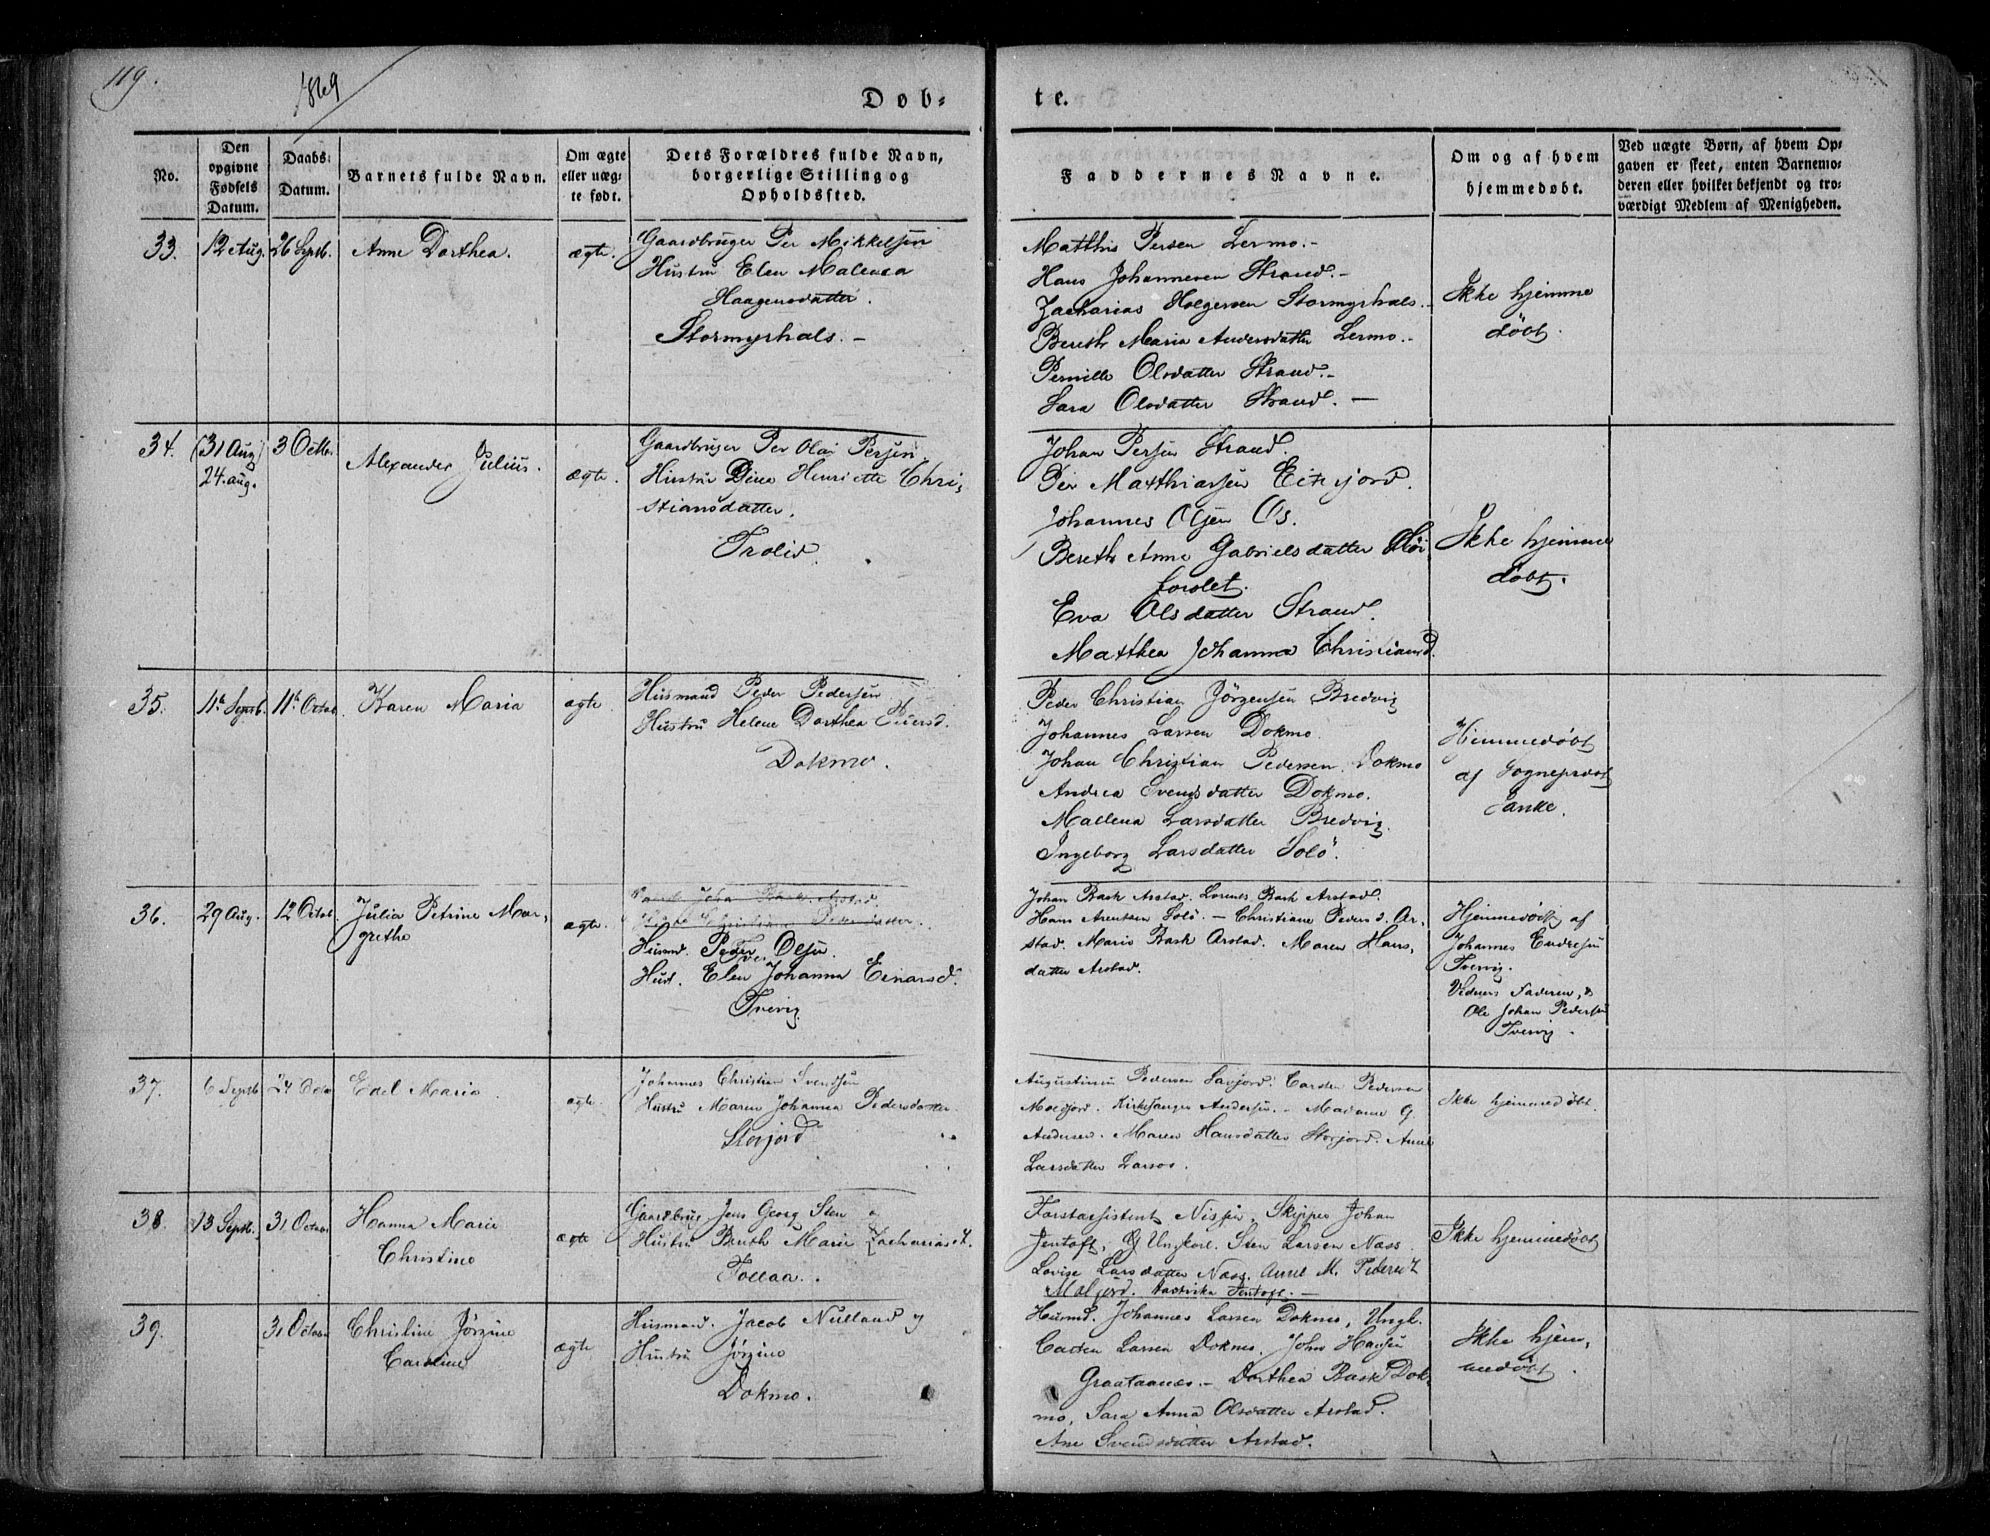 119.
1869
Døb-
te.
No.
Den
opgivne
Fødsels
Datum.
Daabs-
Datum.
Barnets fulde Navn.
Om ægte
eller uæg-
te født.
Dets Forældres fulde Navn,
borgerlige Stilling og
Opholdssted.
Faddernes Navne.
Om og af hvem
hjemmedøbt.
Ved uægte Børn, af hvem Op-
gaven er skeet, enten Barnemo-
deren eller hvilket bekjendt og tro-
værdigt Medlem af Menigheden.
33.
12 Aug.
26 Septb.
Anne Dorthea.
ægte.
Gaardbruger Per Mikkelsen
Hustru Elen Malena
Haagensdatter.
Stormyrhals. –
Matthis Persen Lermo. –
Hans Johannesen Strand. –
Zacharias Holgersen Stormyrhals.
Bereth Maria Andersdatter Lermo. –
Pernille Olsdatter Strand. –
Sara Olsdatter Strand. –
Ikke hjemme
døbt.
34.
(31 Aug)
24. aug.
3 Octbr.
Alexander Julius.
ægte.
Gaardbruger Per Olai Persen
Hustru Dina Henriette Chri-
stiansdatter.
Trolid.
Johan Persen Strand.
Per Matthiasen
Johannes Olsen Os.
Bereth Anne Gabrielsdatter
Eva Olsdatter Strand.
Matthea Johanna Christiansd.
Ikke hjemme
døbt.
35.
11te Septb.
11te Octob.
Karen Maria
ægte.
Husmand Peder Pedersen
Hustru Helene Dorthea
Dokmo.
Peder Christian Jörgensen Bredvig
Johannes Larsen Dokmo.
Johan Christian Pedersen Dokmo
Andrea Svendsdatter Dokmo.
Mallena Larsdatter Bredvig.
Ingeborg Larsdatter Solö.
Hjemmedøbt
af Sogneprest
Janke.
36.
29 Aug.
12 Octob.
Julia Petrine Mar-
grethe
ægte.
Husmd. Peder Olsen.
Hust. Elen Johanna Einarsd.
Tvervig
Johan Bask Arstad. Lorents Bask Arstad.
Hans Arentsen Solö. – Christiane Peders d. Ar-
stad. Maris Bask Arstad. Maren Hans-
datter Arstad.
Hjemmedøbt af
Johannes Endresen
Tvervig.
Vidner Faderen, &
Ole Johan Pedersen
Tvervig.
37.
6 Septb.
24 Octo
Edel Maria.
ægte.
Johannes Christian Svendsen
Hustru Maren Johanna Pedersdatter.
Storjord
Augustinus Pedersen Savjord. Carsten Pedersen
Moldjord. Kirkesanger Andersen. – Madame G.
Andersen. Maren Hansdatter Storjord. Anne
Larsdatter Larsos.
Ikke hjemmedøbt.
38.
13 Septb.
31 Octobr
Hanna Marie
Christine
ægte
Gaardbrug Jens Georg Sten
Hustru Bereth Marie Zachariasd.
Tollaa.
Forstassistent Nissen, Skipper Johan
Jentoft, Ungkarl. Sten Larsen Næss.
Lovise Larsdatter Næss. Anne M. Pedersd.
Moljord. Jentoft. –
Ikke hjemmedøbt
39.
31 Octobr
Christine Jörgine
Caroline
ægte
Husmand. Jacob Nulland og
Hustru Jørgine
Dokmo.
Husmd. Johannes Larsen Dokmo, Ungk.
Carsten Larsen Dokmo. John Hansen
Graataanæs. – Dorthea Bask Dok-
mo, Sara Anna Olsdatter Arstad.
Ane Svendsdatter Arstad.
Ikke hjem-
medøbt.